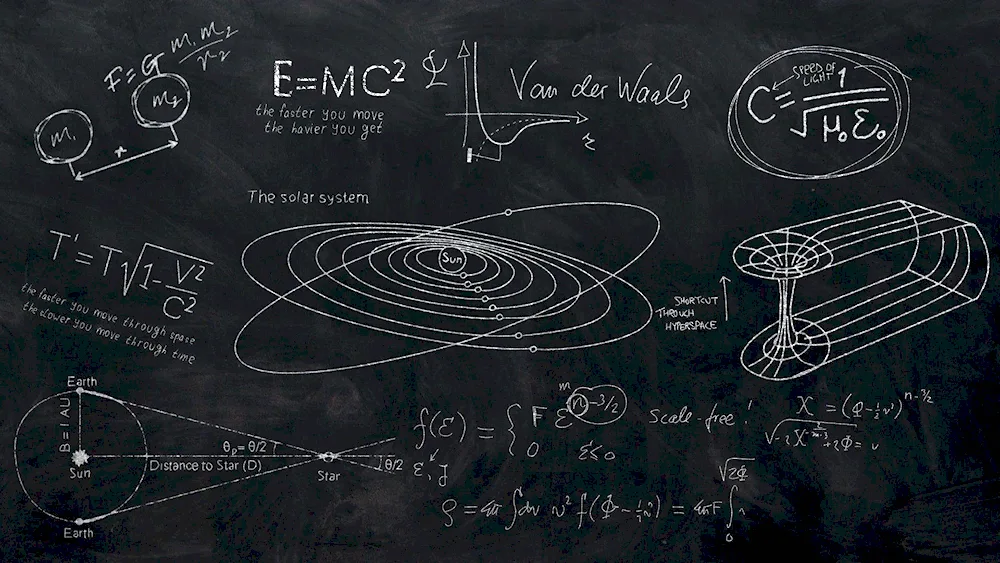 F=G m₁m₂/r²
m₁
m₂
E=MC²
the faster you move
the havier you get
Van der Waals
SPEED OF
LIGHT
C = 1/√μ₀ε₀
The solar system
Sun
T'=T√1-V²/C²
the faster you move through space
the slower you move through time
SHORTCUT
THROUGH
HYPERSPACE
Earth
B=1AU
Sun
θₚ=θ/2
Distance to Star (D)
Star
θ/2
Earth
f(ε) = { F ε^(n-3/2)
0 ε≤0
ε, J
Scale-free!